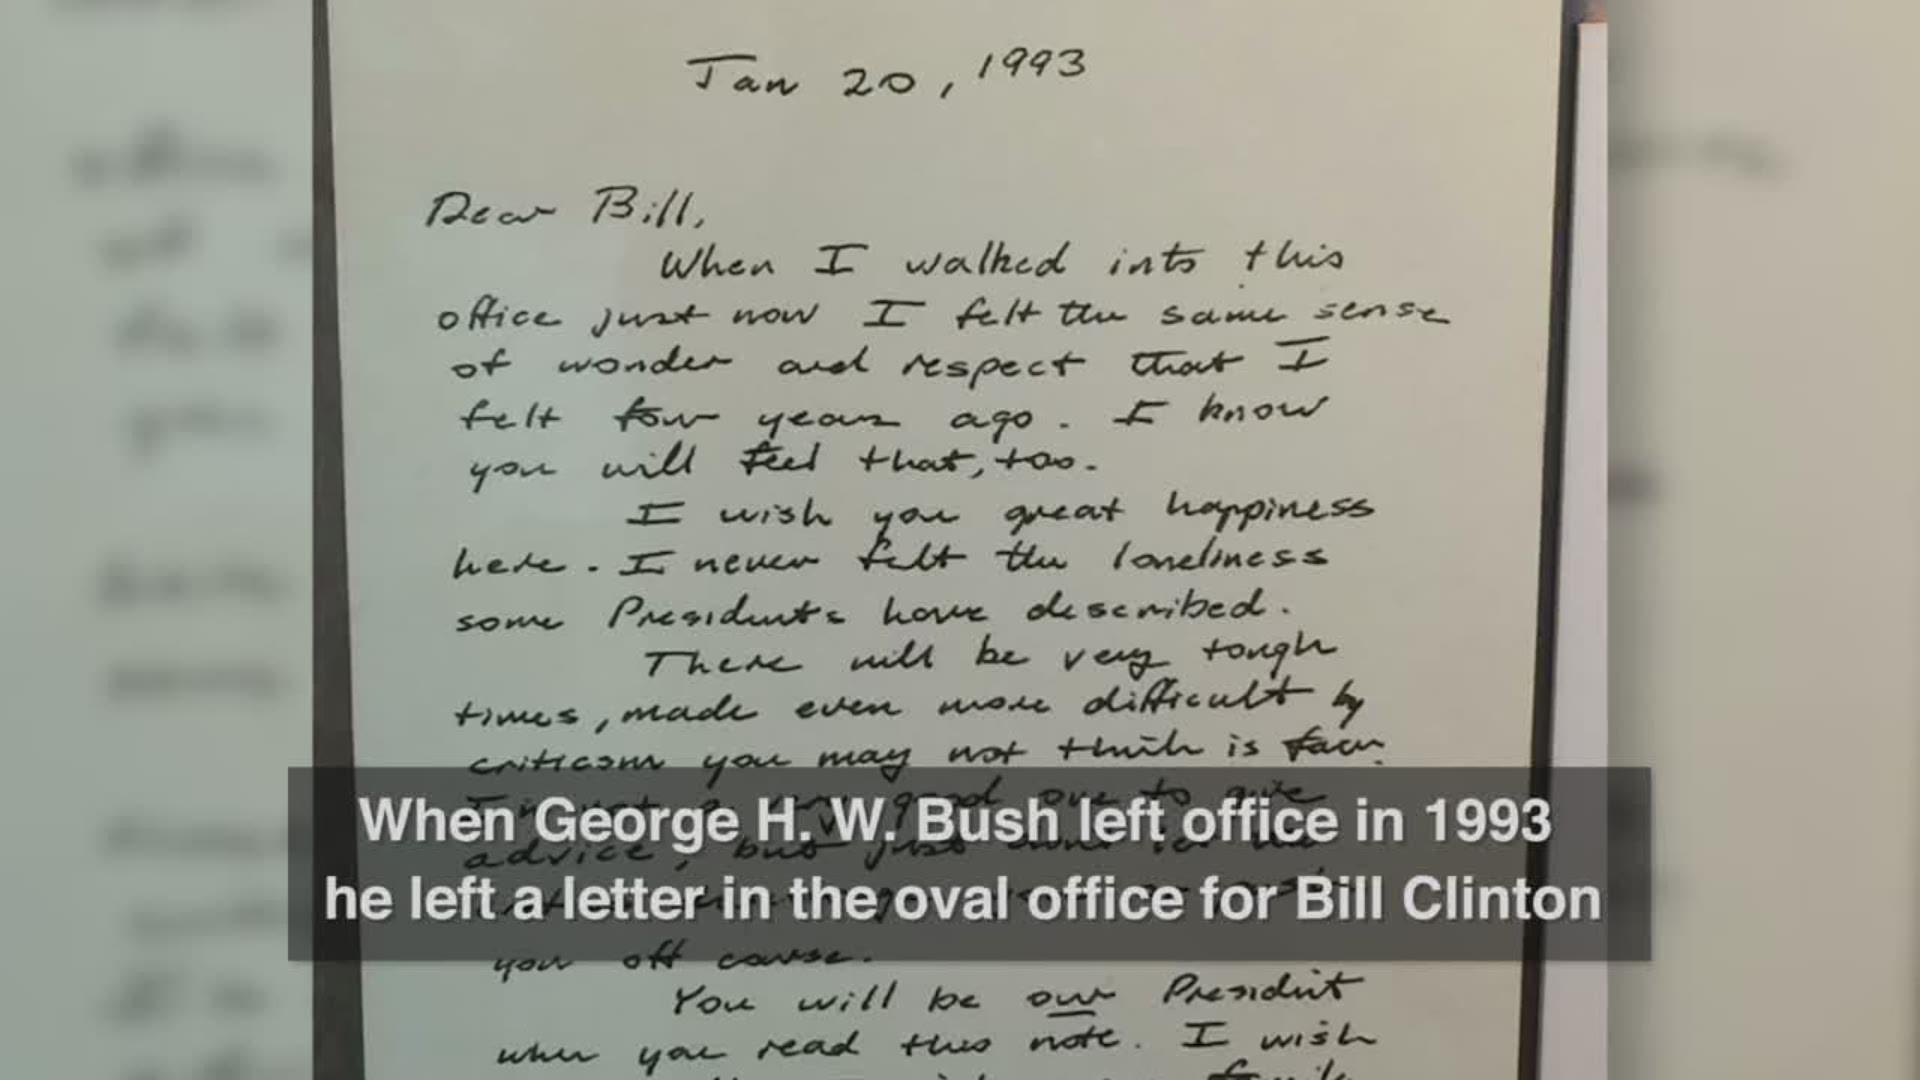 Jan 20, 1993
Dear Bill,
When I walked into this
office just now I felt the same sense
of wonder and respect that I
felt four years ago. I know
you will feel that, too.
I wish you great happiness
here. I never felt the loneliness
some Presidents have described.
There will be very tough
times, made even more difficult by
criticism you may not think is fair.
I'm not a very good one to give
advice, but just don't let the
When George H. W. Bush left office in 1993
he left a letter in the oval office for Bill Clinton
you off course.
You will be our President
when you read this note. I wish
family